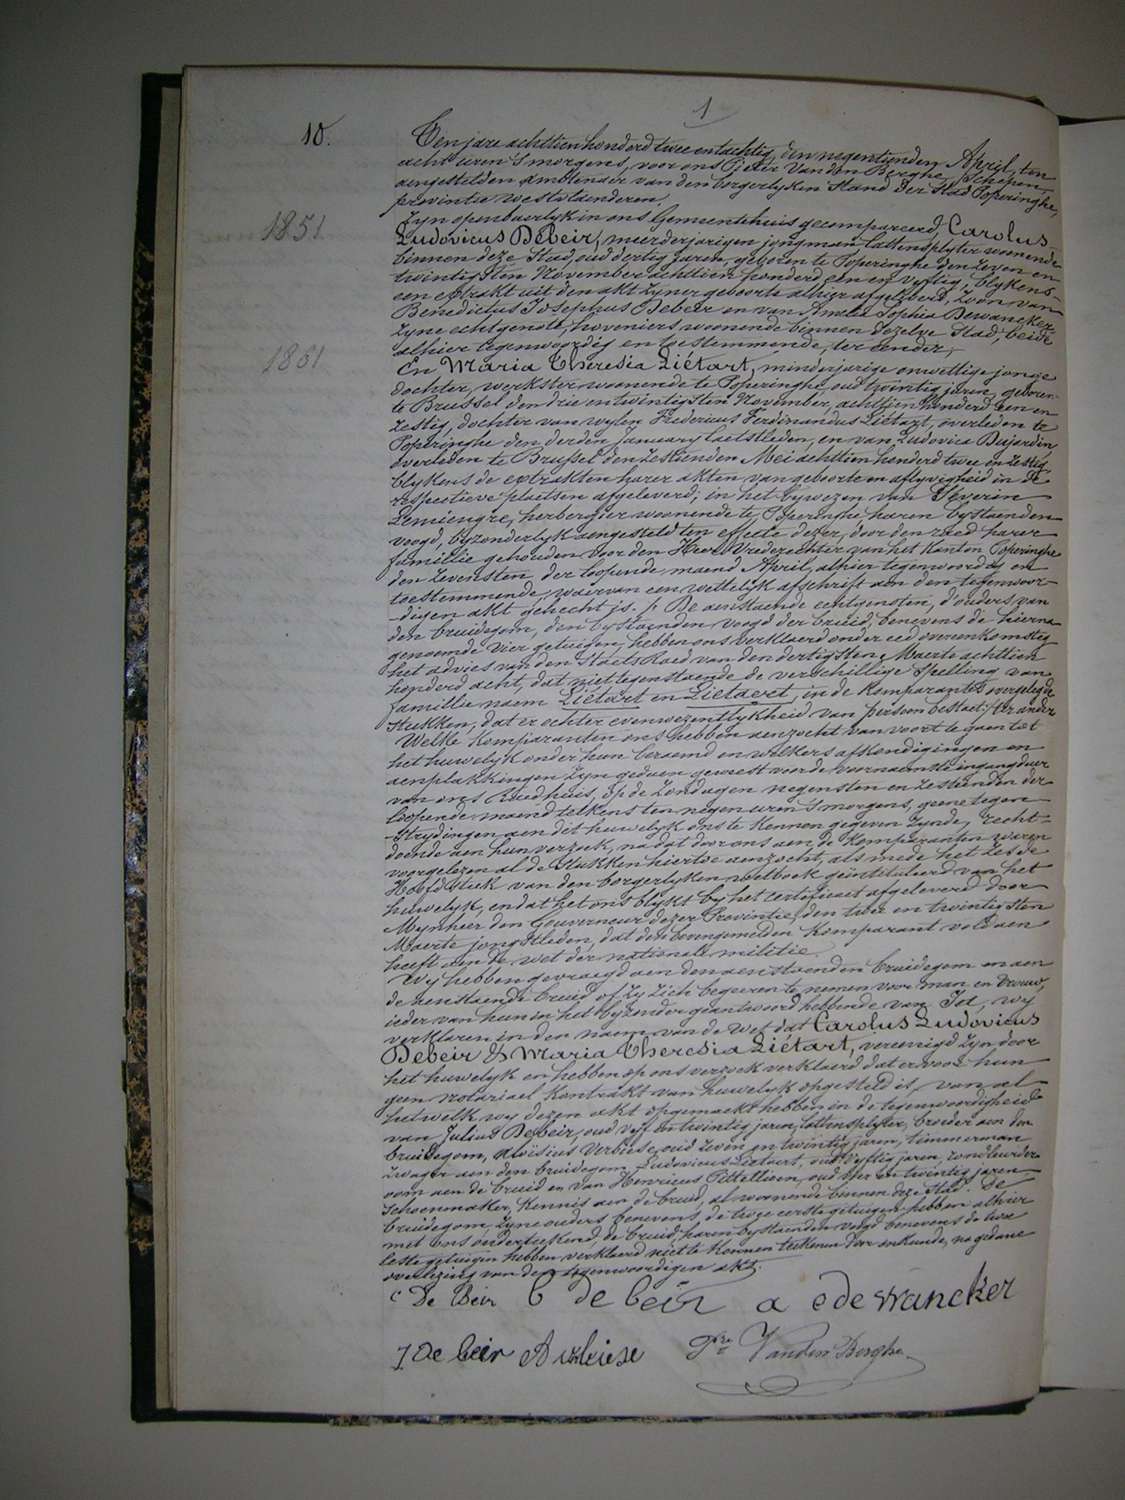 1
10.
Ten jare achttien honderd twee en tachtig, den negentienden April, ten
acht uren 's morgens, voor ons Pieter Van den Berghe, Schepen,
aengestelden ambtenaer van den borgerlyken Stand der Stad Poperinghe,
provintie Westvlaenderen,
Zyn openbaerlyk in ons Gemeentehuis gecompareerd, Carolus
1851
Ludovicus Debeir, meerderjarigen jongman lattensplyter woonende
binnen deze Stad, oud dertig jaren, geboren te Poperinghe den zeven en
twintigsten November achttien honderd een en vyftig, blykens
een extrakt uit den akt zyner geboorte alhier afgeleverd, zoon van
Benedictus Josephus Debeir en van Amelia Sophia Dewancker,
zyne echtgenote, hoveniers, woonende binnen dezelve Stad, beide
alhier tegenwoordig en toestemmende, ter eender,
1861
En Maria Theresia Liétart, minderjarige onwettige jonge
dochter, werkster woonende te Poperinghe, oud twintig jaren, geboren
te Brussel den drie en twintigsten November, achttien honderd een en
zestig, dochter van wylen Fredericus Ferdinandus Liétart, overleden te
Poperinghe den derden January laetstleden, en van Ludovica Dujardin,
overleden te Brussel den zestienden Mei achttien honderd twee en zestig,
blykens de extrakten harer akten van geboorte en aflyvigheid in de
respectieve plaetsen afgeleverd; in het bywezen van Séverin
Lemiengre, herbergier woonende te Poperinghe haren bystaenden
voogd, byzonderlyk aengesteld ten effecte dezer, door den raed harer
familie gehouden door den Heer Vrederechter van het Kanton Poperinghe
den zevensten der loopende maend April, alhier tegenwoordig en
toestemmende, waervan een wettelyk afschrift aen den tegenwoor-
-digen akt gehecht is. /: De aenstaende echtgenoten, d'ouders van
den bruidegom, den bystaenden voogd der bruid, benevens de hierna
genoemde vier getuigen, hebben ons verklaerd onder eed overeenkomstig
het advies van den Staets Raed van den dertigsten Maerte achttien
honderd acht, dat niet tegenstaende de verschillige spelling van
familie naem Liétart en Lietaert, in de Komparants voorgelegde
stukken, dat er echter evenwezentlykheid van persoon bestaet; ter ander
Welke Komparanten ons hebben aenzocht van voort te gaen tot
het huwelyk onder hun beraemd en welkers afkondigingen en
aenplakkingen zyn gedaen geweest voor de voornaemste ingangdeur
van ons Raedhuis, op de zondagen negensten en zestienden der
loopende maend telkens ten negen uren 's morgens, geene tegen-
-strydingen aen dit huwelyk ons te kennen gegeven zynde, recht-
doende aen hun verzoek, na dat door ons aen de Komparanten waren
voorgelezen al de Stukken hiertoe aenzocht, als mede het zesde
Hoofdstuk van den borgerlyken wetboek geïntituleerd van het
huwelyk, en dat het ons blykt by het certificaet afgeleverd door
Mynheer den Gouverneur dezer Provintie, den twee en twintigsten
Maerte jongstleden, dat den bovengemelden Komparant voldaen
heeft aen de wet der nationale militie.
Wy hebben gevraegd aen den aenstaenden bruidegom en aen
de aenstaende bruid of zy zich begeeren te nemen voor man en vrouw,
ieder van hun in het byzonder geantwoord hebbende van Jae, wy
verklaren in den naem van de Wet dat Carolus Ludovicus
Debeir & Maria Theresia Liétart, vereenigd zyn door
het huwelyk en hebben op ons verzoek verklaerd dat er voor hun
geen notariael Kontrakt van huwelyk opgesteld is, van al
hetwelk wy dezen akt opgemaekt hebben in de tegenwoordigheid
van Julius Debeir, oud vyf en twintig jaren, lattensplyter, broeder aen den
bruidegom, Aloïsius Verbiese, oud zeven en twintig jaren, timmerman
zwager aen den bruidegom, Ludovicus Lietaert, oud vyftig jaren,
oom aen de bruid en van Henricus Pittellioen, oud vier en twintig jaren,
schoenmaker, Kennis aen de bruid, al woonende binnen deze Stad. De
bruidegom, zyne ouders benevens, de twee eerste getuigen hebben alhier
met ons onderteekend, de bruid, haren bystaenden voogd benevens de twee
leste getuigen hebben verklaerd niet te Konnen teekenen door onkunde, na gedane
overlezing van den tegenwoordigen akt.
C De Beir B de beir a s dewancker
J. De beir A verbiese Van den Berghe